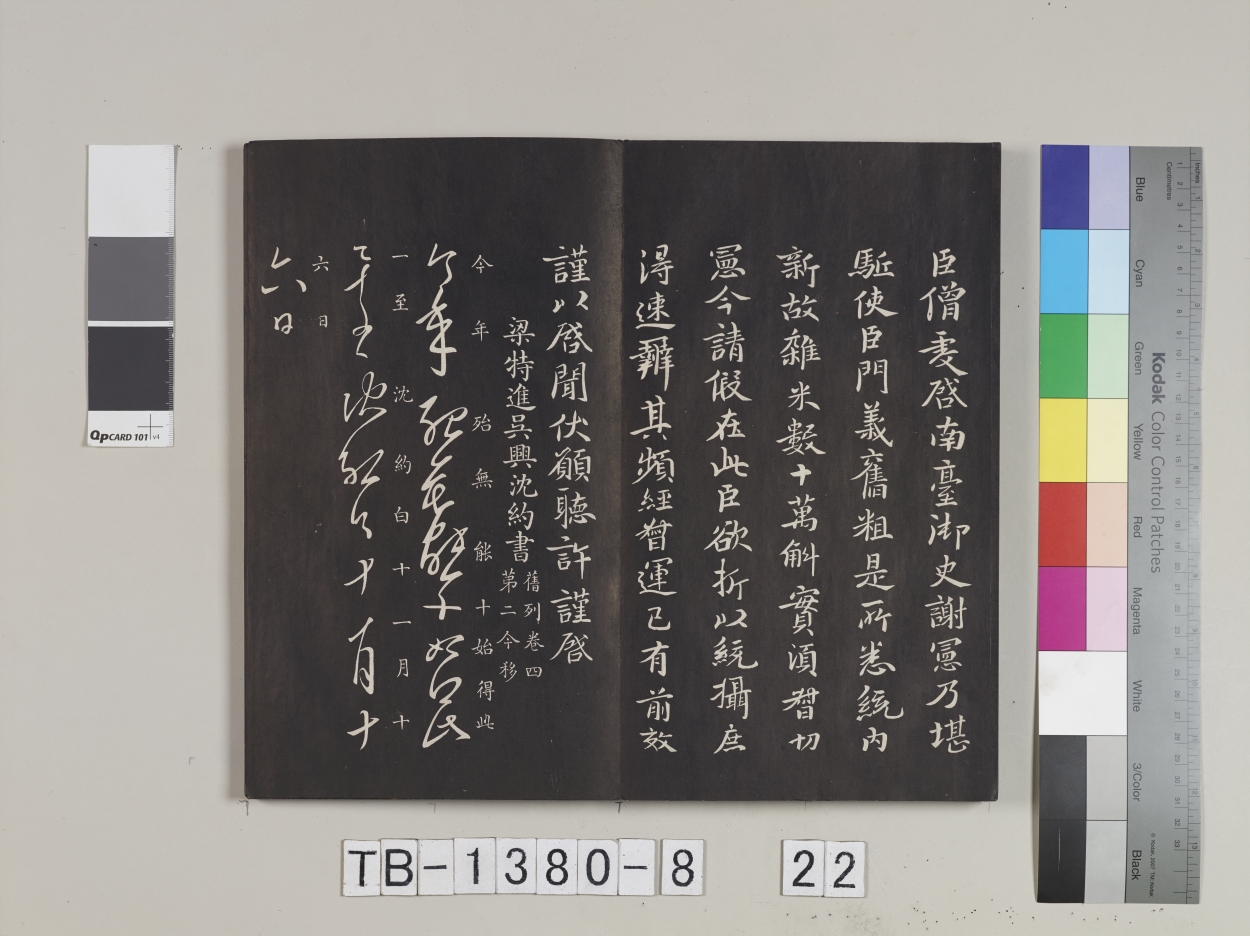 臣僧虔啓南臺御史謝憲乃堪
駈使臣門義舊粗是所悉統内
新故雜米數十萬斛實須督切
憲今請假在此臣欲折以統攝庶
得速辦其頻經督運已有前效
謹以啓聞伏願聽許謹啓
梁特進吳興沈約書
舊列卷四
第二今移
今年殆無能十始得此
今年殆無能十始得此
一至沈約白十一月十
一至沈約白十一月十
六日
六日
QPCARD 101 v4
Kodak Color Control Patches
Blue
Cyan
Green
Yellow
Red
Magenta
White
3/Color
Black
Inches
Centimetres
© Kodak, 2007 TM: Kodak
TB-1380-8 22